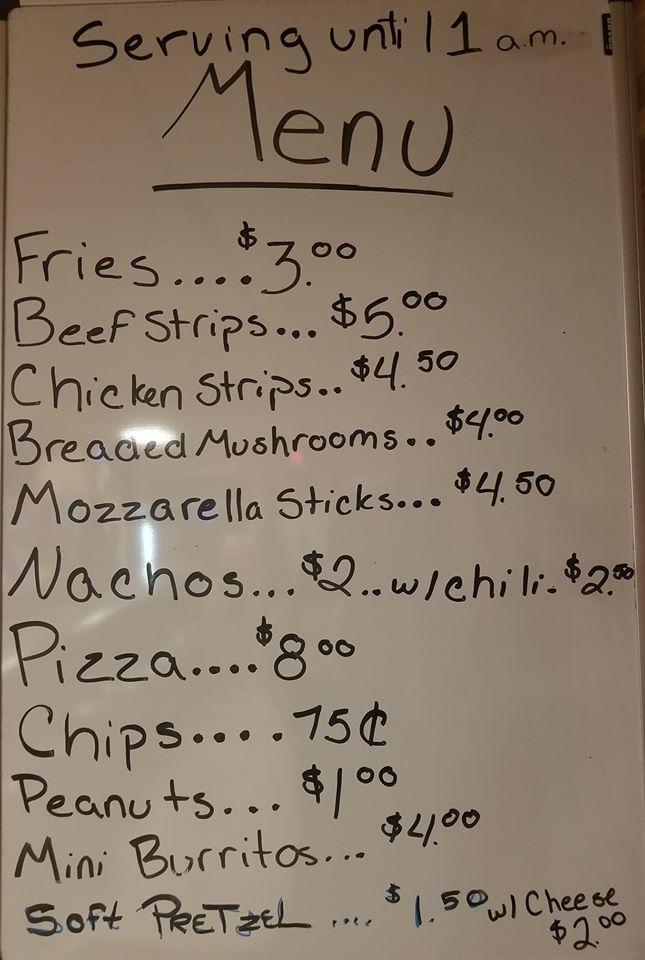 Serving until 1 a.m.
Menu
Fries....$3.00
Beef Strips...$5.00
Chicken Strips..$4.50
Breaded Mushrooms..$4.00
Mozzarella Sticks...$4.50
Nachos...$2..w/chili.$2.50
Pizza....$8 00
Chips....75¢
Peanuts...$1 00
Mini Burritos...$4.00
Soft PRETZEL ....$1.50 w/ Cheese
$2.00